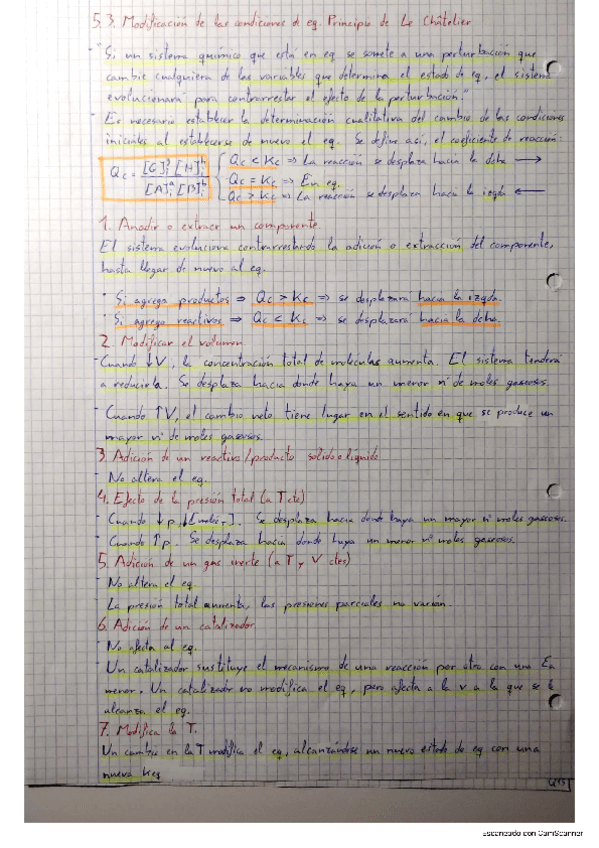 5.3. Modificación de las condiciones de eq. Principio de Le Châtelier
- "Si un sistema químico que está en eq se somete a una perturbación que
cambie cualquiera de las variables que determina el estado de eq, el sistema
evolucionará para contrarrestar el efecto de la perturbación."
- Es necesario establecer la determinación cualitativa del cambio de las condiciones
iniciales al establecerse de nuevo el eq. Se define así, el coeficiente de reacción:
Qc = [G]i^g [H]i^h / [A]i^a [B]i^b
Qc < Kc => La reacción se desplaza hacia la dcha →
Qc = Kc => En eq.
Qc > Kc => La reacción se desplaza hacia la izqda ←
1. Añadir o extraer un componente.
El sistema evoluciona contrarrestando la adición o extracción del componente,
hasta llegar de nuevo al eq.
· Si agrega productos => Qc > Kc => se desplazará hacia la izqda.
· Si agrega reactivos => Qc < Kc => se desplazará hacia la dcha.
2. Modificar el volumen
- Cuando ↓V, la concentración total de moléculas aumenta. El sistema tenderá
a reducirla. Se desplaza hacia donde haya un menor nº de moles gaseosos.
- Cuando ↑V, el cambio neto tiene lugar en el sentido en que se produce un
mayor nº de moles gaseosos.
3. Adición de un reactivo/producto sólido o líquido
- No altera el eq.
4. Efecto de la presión total (a T cte)
- Cuando ↓p, ↓[moles]. Se desplaza hacia donde haya un mayor nº moles gaseosos.
- Cuando ↑p. Se desplaza hacia donde haya un menor nº moles gaseosos.
5. Adición de un gas inerte (a T y V ctes)
- No altera el eq.
- La presión total aumenta, las presiones parciales no varían.
6. Adición de un catalizador.
- No afecta al eq.
- Un catalizador sustituye el mecanismo de una reacción por otro con una Ea
menor. Un catalizador no modifica el eq, pero afecta a la v a la que se
alcanza el eq.
7. Modifica la T.
Un cambio en la T modifica el eq, alcanzándose un nuevo estado de eq con una
nueva Keq
Escaneado con CamScanner